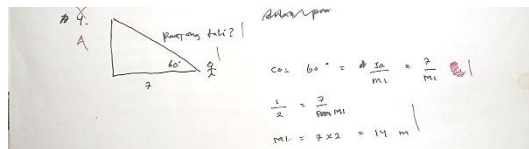 4.
A
panjang tali?
60°
7
cos 60° = sa/mi = 7/mi
1/2 = 7/mi
mi = 7 x 2 = 14 m